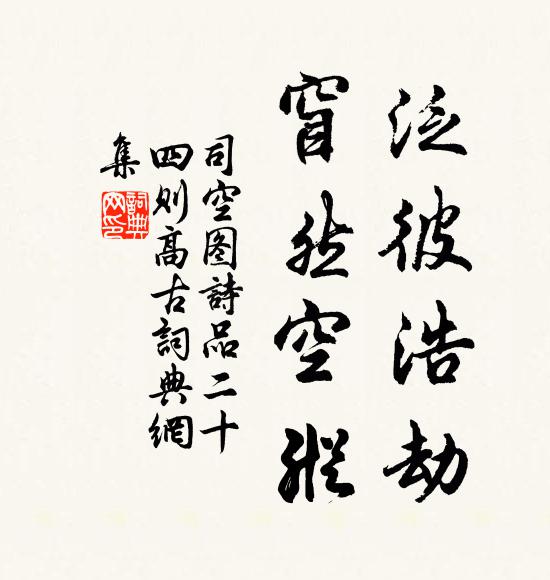 泛彼浩劫
窅然空蹤
司空图詩品二十
四则高古詞典網
集
詞典
网印